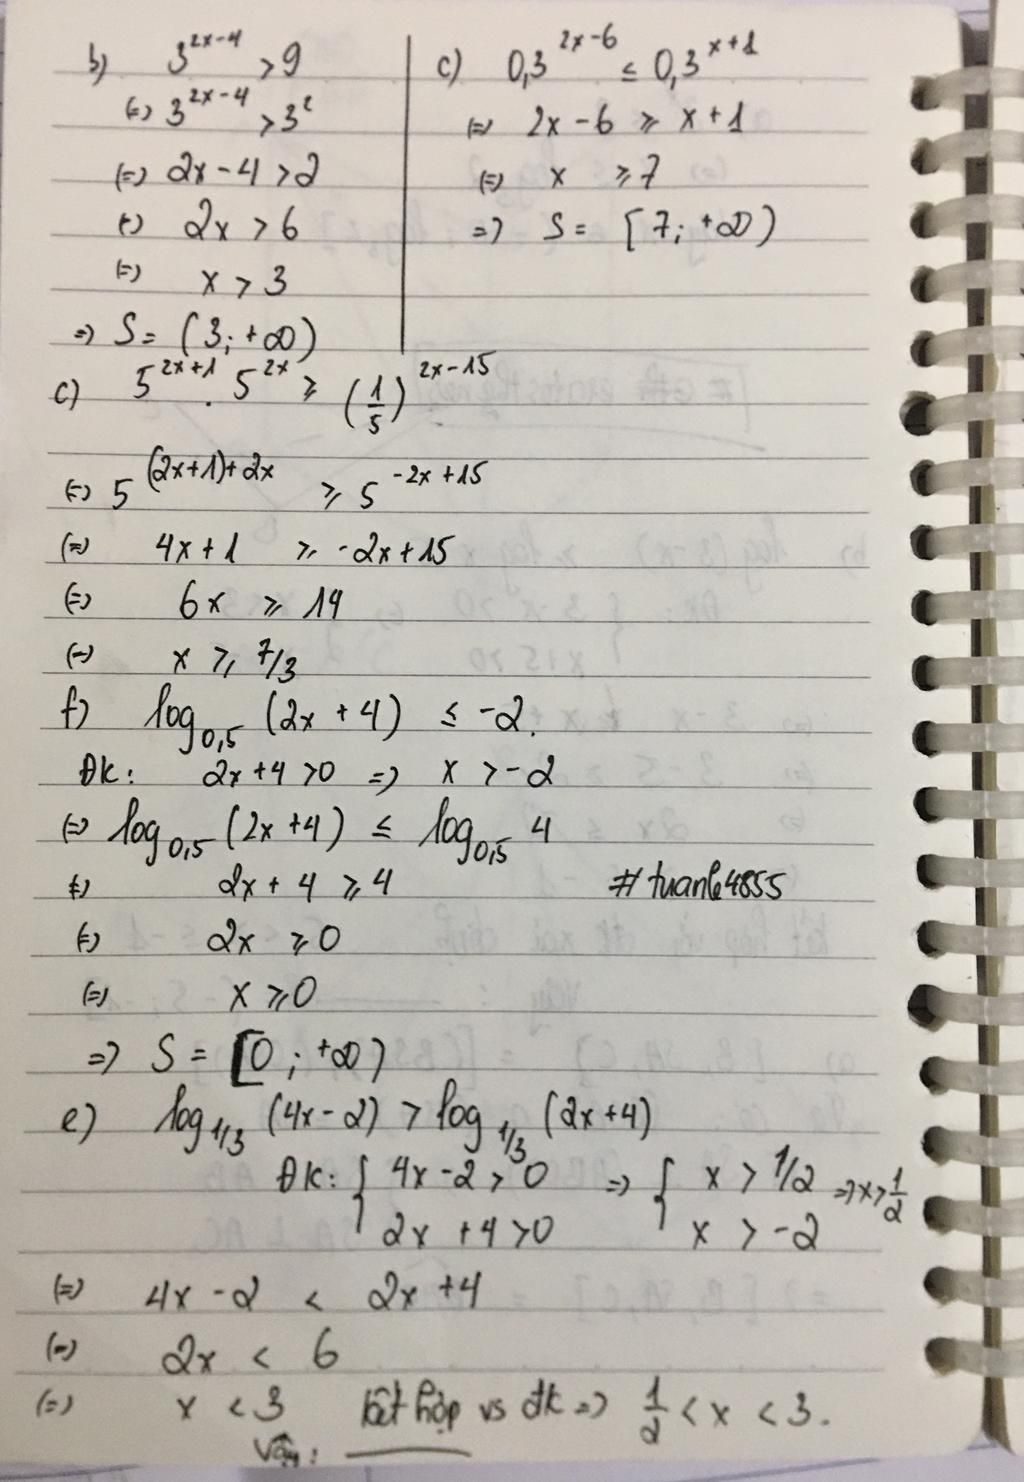 b) 3^{2x-4} > 9
(=) 3^{2x-4} > 3^2
(=) 2x - 4 > 2
(=) 2x > 6
(=) x > 3
=) S = (3; +∞)
c) 0,3^{2x-6} ≤ 0,3^{x+1}
(=) 2x - 6 ≥ x + 1
(=) x ≥ 7
=) S = [7; +∞)
c) 5^{2x+1} . 5^{2x} ≥ (1/5)^{2x-15}
(=) 5^{(2x+1)+2x} ≥ 5^{-2x+15}
(=) 4x + 1 ≥ -2x + 15
(=) 6x ≥ 14
(=) x ≥ 7/3
f) log_{0,5} (2x + 4) ≤ -2.
ĐK: 2x + 4 > 0 =) x > -2
(=) log_{0,5} (2x + 4) ≤ log_{0,5} 4
(=) 2x + 4 ≥ 4 #tuanle4855
(=) 2x ≥ 0
(=) x ≥ 0
=) S = [0; +∞)
e) log_{1/3} (4x - 2) > log_{1/3} (2x + 4)
ĐK: { 4x - 2 > 0 =) { x > 1/2 =) x > 1/2
2x + 4 > 0 x > -2
(=) 4x - 2 < 2x + 4
(=) 2x < 6
(=) x < 3 kết hợp vs đk =) 1/2 < x < 3.
Vậy: